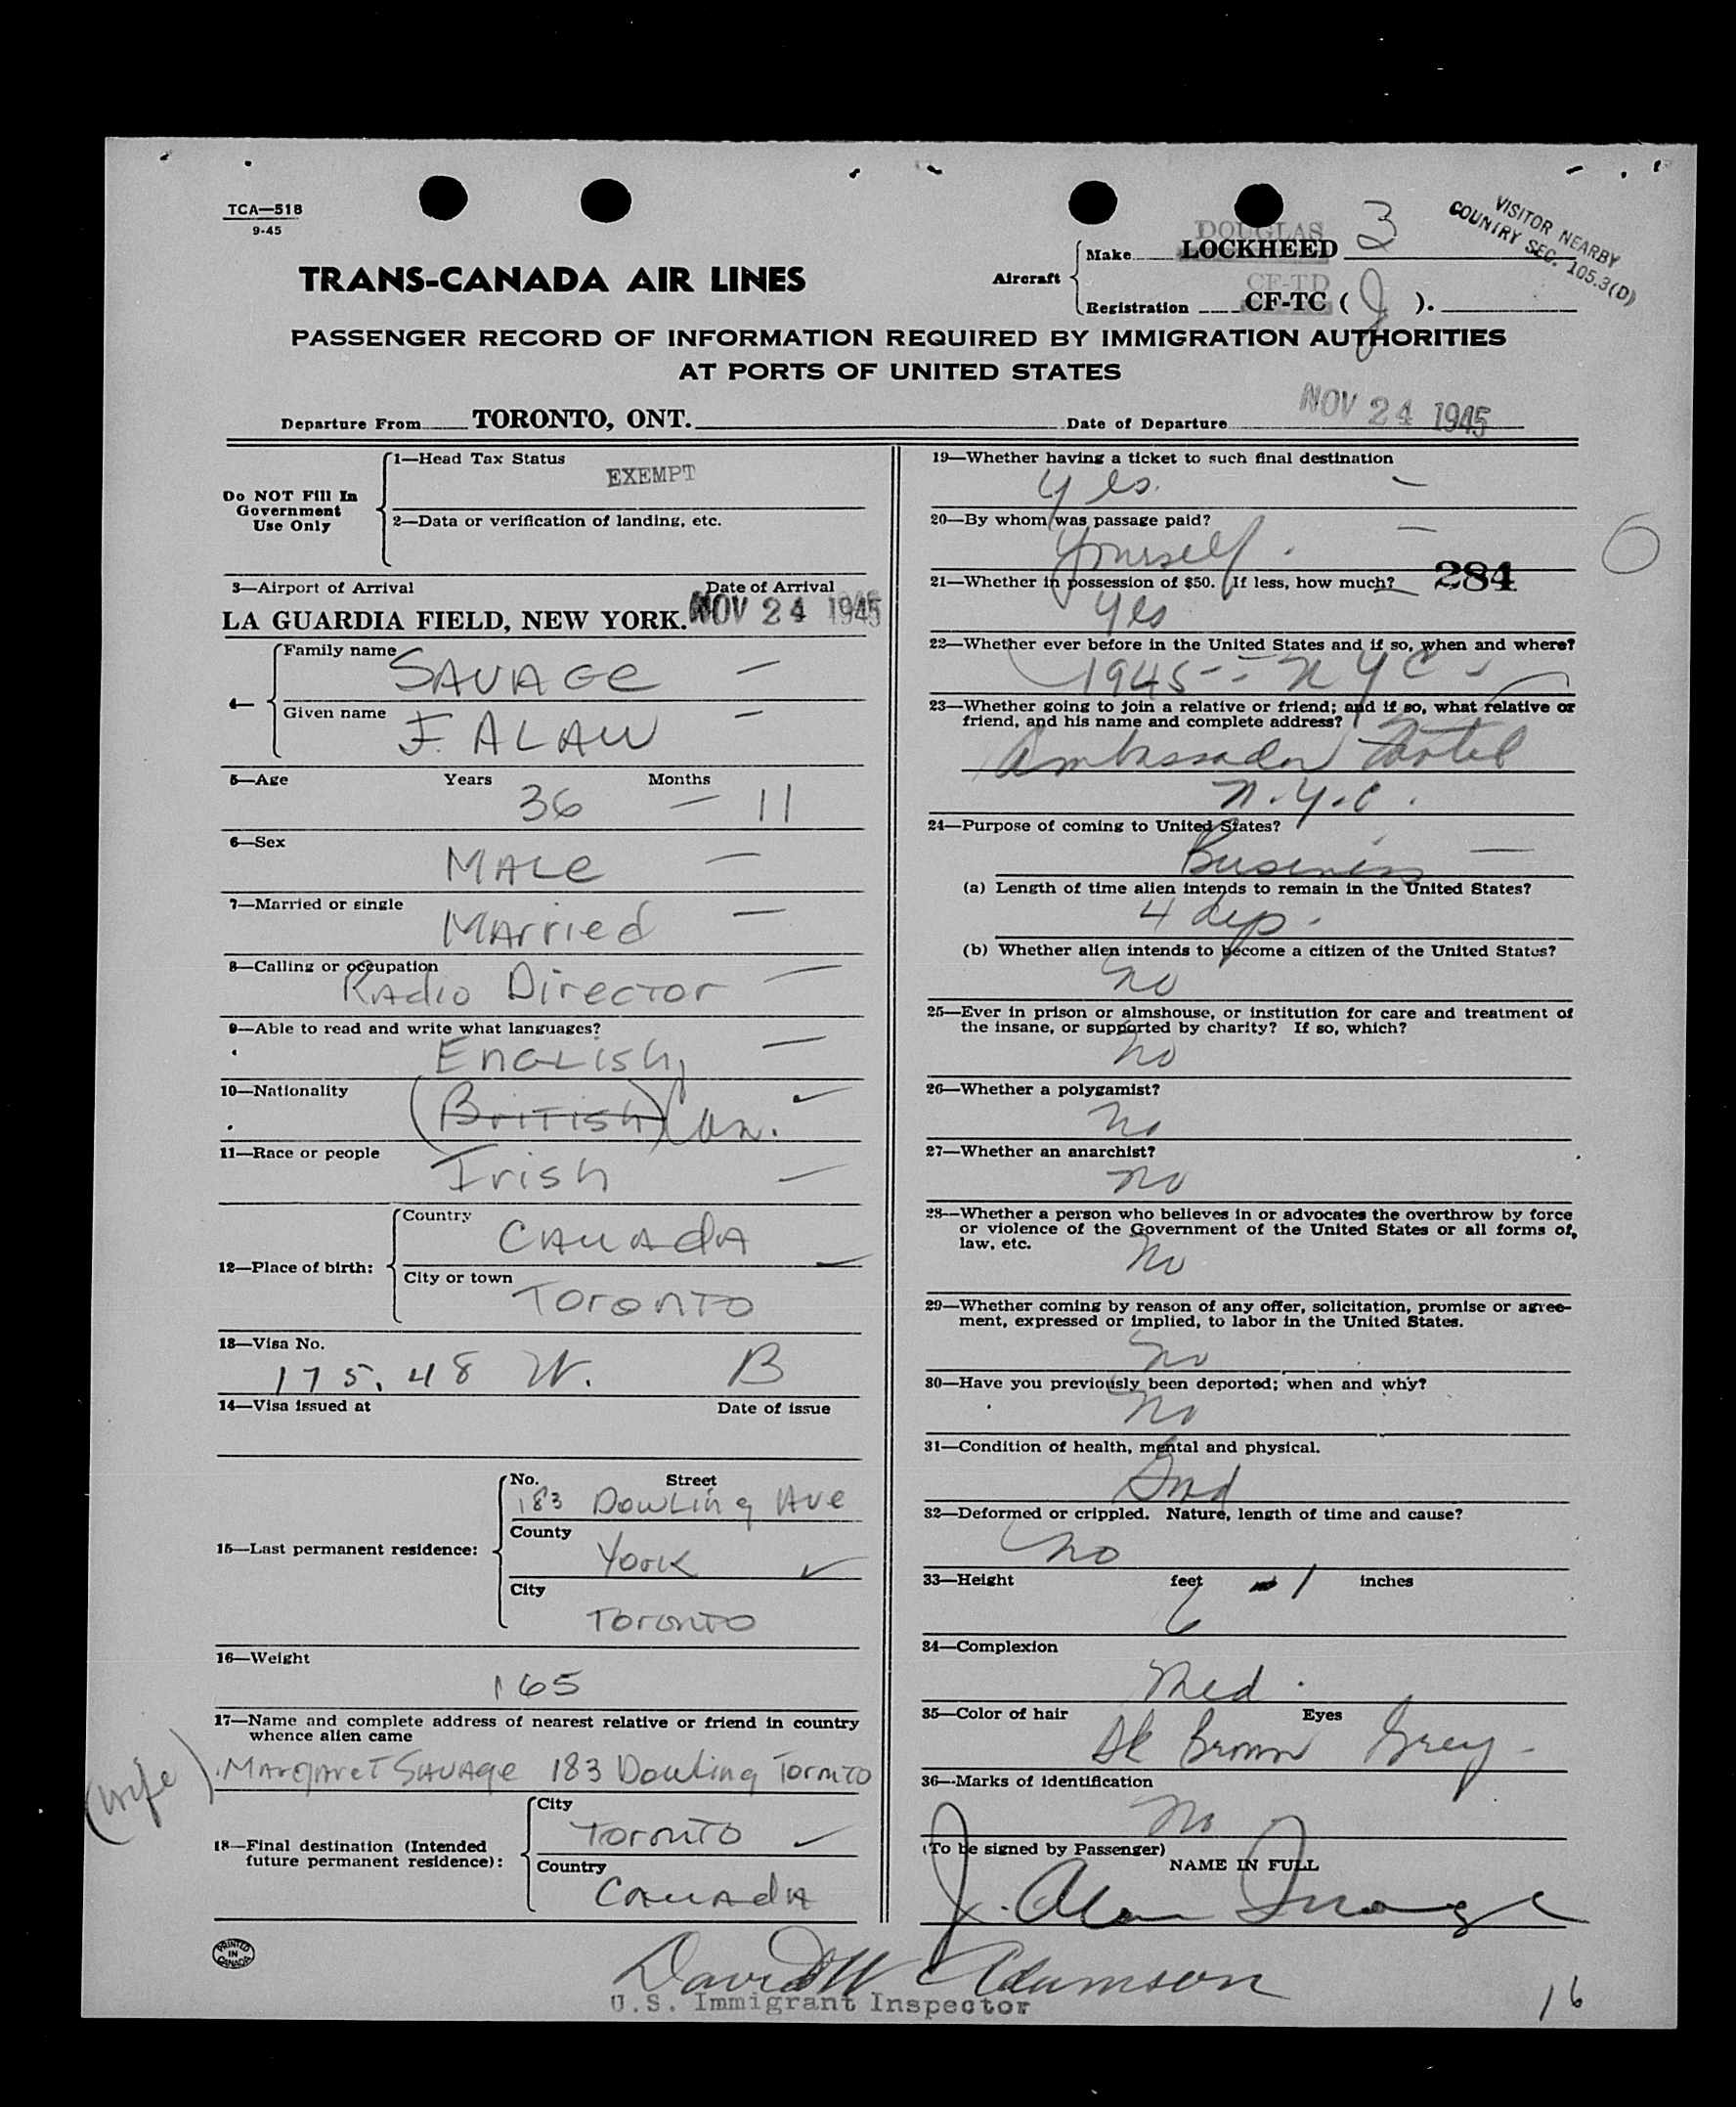 TCA—518
9-45
VISITOR NEARBY
COUNTRY SEC. 105.3(D)
TRANS-CANADA AIR LINES
Aircraft
DOUGLAS
Make LOCKHEED 3
CF-TD
Registration CF-TC ( J ).
PASSENGER RECORD OF INFORMATION REQUIRED BY IMMIGRATION AUTHORITIES
AT PORTS OF UNITED STATES
Departure From TORONTO, ONT. Date of Departure NOV 24 1945
Do NOT Fill In
Government
Use Only
1—Head Tax Status
EXEMPT
2—Data or verification of landing, etc.
3—Airport of Arrival Date of Arrival
LA GUARDIA FIELD, NEW YORK. NOV 24 1945
4—
Family name
SAVAGE
Given name
J. ALAN
5—Age Years Months
36 — 11
6—Sex
MALE
7—Married or single
Married
8—Calling or occupation
Radio Director
9—Able to read and write what languages?
English
10—Nationality
(British) Can.
11—Race or people
Irish
12—Place of birth:
Country
CANAdA
City or town
Toronto
13—Visa No.
175.48 W. B
14—Visa issued at Date of issue
15—Last permanent residence:
No. Street
183 Dowling Ave
County
York
City
Toronto
16—Weight
165
17—Name and complete address of nearest relative or friend in country
whence alien came
(wife) Margaret Savage 183 Dowling Toronto
18—Final destination (Intended
future permanent residence):
City
Toronto
Country
CanadA
19—Whether having a ticket to such final destination
Yes.
20—By whom was passage paid?
Yourself.
21—Whether in possession of $50. If less, how much? 284
Yes
22—Whether ever before in the United States and if so, when and where?
1945 -- N Y C -
23—Whether going to join a relative or friend; and if so, what relative or
friend, and his name and complete address?
Ambassador Hotel
N.Y.C.
24—Purpose of coming to United States?
Business
(a) Length of time alien intends to remain in the United States?
4 dys.
(b) Whether alien intends to become a citizen of the United States?
no
25—Ever in prison or almshouse, or institution for care and treatment of
the insane, or supported by charity? If so, which?
no
26—Whether a polygamist?
no
27—Whether an anarchist?
no
28—Whether a person who believes in or advocates the overthrow by force
or violence of the Government of the United States or all forms of
law, etc.
no
29—Whether coming by reason of any offer, solicitation, promise or agree-
ment, expressed or implied, to labor in the United States.
no
30—Have you previously been deported; when and why?
no
31—Condition of health, mental and physical.
Good
32—Deformed or crippled. Nature, length of time and cause?
no
33—Height feet inches
6 - 1
34—Complexion
Med.
35—Color of hair Eyes
Dk Brown Grey -
36—Marks of identification
no
(To be signed by Passenger)
NAME IN FULL
J. Alan Savage
PRINTED
IN
CANADA
David W Adamson
U.S. Immigrant Inspector
16